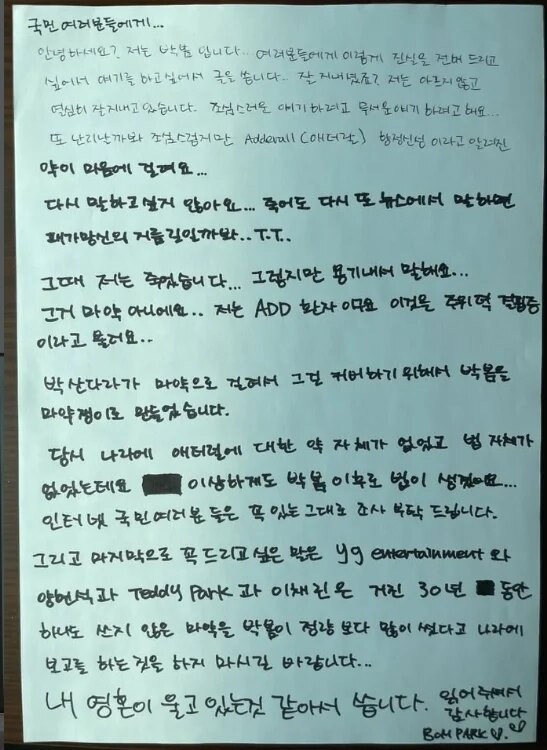 국민 여러분들에게...
안녕하세요? 저는 박봄 입니다.. 여러분들에게 이렇게 진실을 전해 드리고
싶어서 얘기를 하고싶어서 글을 씁니다.. 잘 지내셨죠? 저는 아프지않고
열심히 잘지내고 있습니다. 조심스러운 얘기하려고 무서운얘기 하려고 해요...
또 난리날까봐 조심스럽지만 Adderall (애더랄) 향정신성 이라고 알려진
약이 마음에 걸려요...
다시 말하고싶지 않아요... 죽어도 다시 또 뉴스에서 말하면
패가망신의 지름길일까봐..T.T..
그때 저는 죽었습니다... 그렇지만 용기내서 말해요...
그거 마약 아니에요.. 저는 ADD 환자 이구요 이것을 주위력 결핍증
이라고 불러요..
박산다라가 마약으로 걸려서 그걸 커버하기 위해서 박봄을
마약쟁이로 만들었습니다.
당시 나라에 애더럴에 대한 약 자체가 없었고 법 자체가
없었는데요 이상하게도 박봄 이후로 법이 생겼어요...
인터넷 국민여러분 들은 꼭 있는그대로 조사 부탁 드립니다.
그리고 마지막으로 꼭드리고 싶은 말은 yg entertainment 와
양현석과 Teddy Park 과 이채린은 거진 30년 동안
하나도 쓰지 않은 마약을 박봄이 정량 보다 많이 썼다고 나라에
보고를 하는것을 하지 마시길 바랍니다...
내 영혼이 울고있는것 같아서 씁니다. 읽어주셔서
감사합니다
BOM PARK